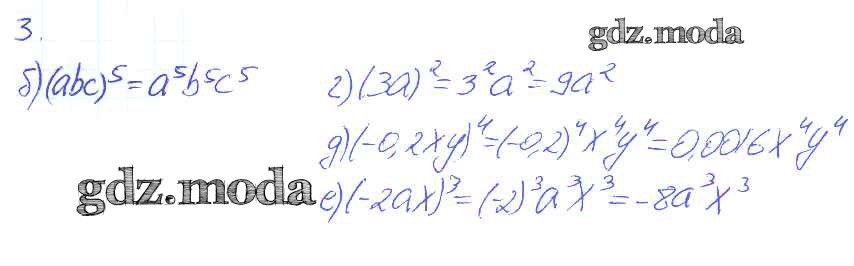 3.
gdz.moda
б) (abc)⁵ = a⁵b⁵c⁵
г) (3a)² = 3²a² = 9a²
д) (-0,2xy)⁴ = (-0,2)⁴x⁴y⁴ = 0,0016x⁴y⁴
gdz.moda
е) (-2ax)³ = (-2)³a³x³ = -8a³x³